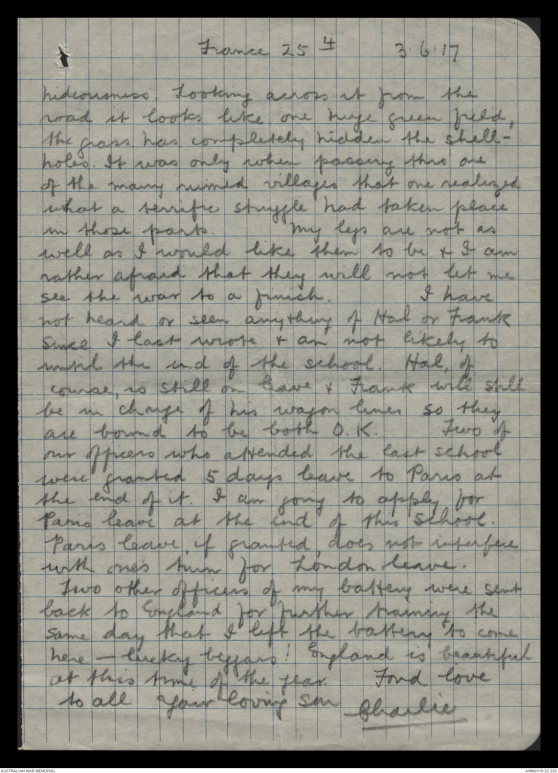 France 25 4 3.6.17
hideousness. Looking across it from the
road it looks like one huge green field,
the grass has completely hidden the shell-
holes. It was only when passing thro one
of the many ruined villages that one realized
what a terrific struggle had taken place
in those parts. My legs are not as
well as I would like them to be & I am
rather afraid that they will not let me
see the war to a finish. I have
not heard or seen anything of Hal or Frank
since I last wrote & am not likely to
until the end of the school. Hal, of
course, is still on leave & Frank will still
be in charge of his wagon lines so they
are bound to be both O.K. Two of
our officers who attended the last school
were granted 5 days leave to Paris at
the end of it. I am going to apply for
Paris leave at the end of this school.
Paris leave, if granted, does not interfere
with ones turn for London leave.
Two other officers of my battery were sent
back to England for further training the
same day that I left the battery to come
here — lucky beggars! England is beautiful
at this time of the year. Fond love
to all Your loving son Charlie
AUSTRALIAN WAR MEMORIAL